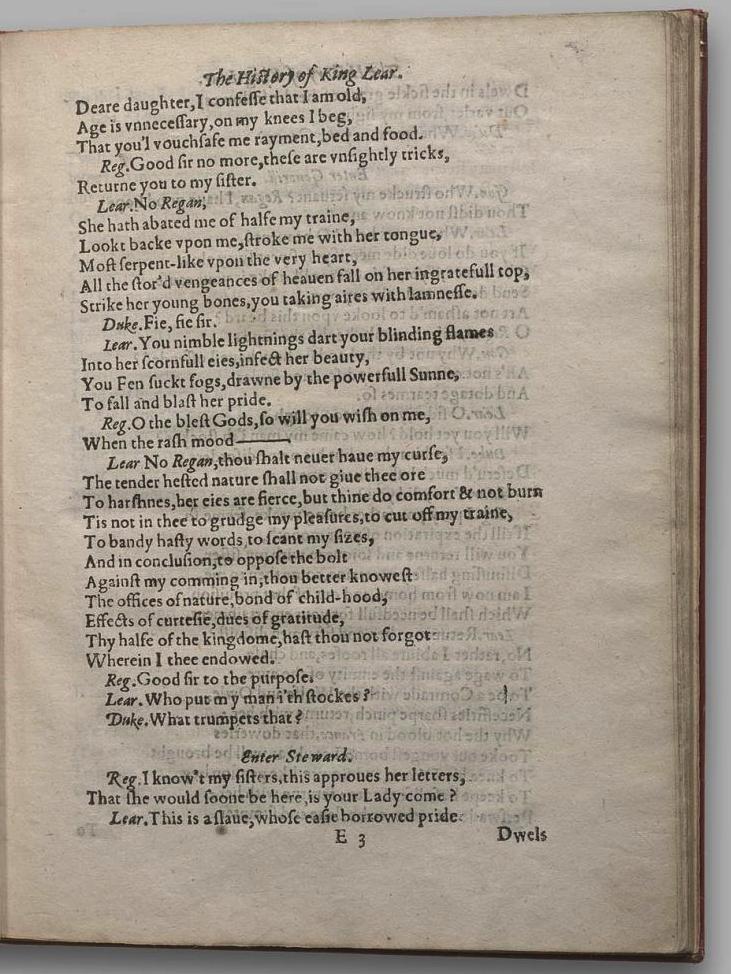 The Hiſtory of King Lear.
Deare daughter,I confeſſe that I am old,
Age is vnneceſſary,on my knees I beg,
That you'l vouchſafe me rayment,bed and food.
Reg.Good ſir no more,theſe are vnſightly tricks,
Returne you to my ſiſter.
Lear.No Regan,
She hath abated me of halfe my traine,
Lookt backe vpon me,ſtroke me with her tongue,
Moſt ſerpent-like vpon the very heart,
All the ſtor'd vengeances of heauen fall on her ingratefull top,
Strike her young bones,you taking aires with lamneſſe.
Duke.Fie, fie ſir.
Lear.You nimble lightnings dart your blinding flames
Into her ſcornfull eies,infect her beauty,
You Fen ſuckt fogs,drawne by the powerfull Sunne,
To fall and blaſt her pride.
Reg.O the bleſt Gods,ſo will you wiſh on me,
When the raſh mood———
Lear No Regan,thou ſhalt neuer haue my curſe,
The tender heſted nature ſhall not giue thee ore
To harſhnes,her eies are fierce,but thine do comfort & not burn
Tis not in thee to grudge my pleaſures,to cut off my traine,
To bandy haſty words,to ſcant my ſizes,
And in concluſion,to oppoſe the bolt
Againſt my comming in,thou better knoweſt
The offices of nature,bond of child-hood,
Effects of curteſie,dues of gratitude,
Thy halfe of the kingdome,haſt thou not forgot
Wherein I thee endowed.
Reg.Good ſir to the purpoſe.
Lear.Who put my man i'th ſtockes?
Duke.What trumpets that?
Enter Steward.
Reg.I know't my ſiſters,this approues her letters,
That ſhe would ſoone be here,is your Lady come?
Lear.This is a ſlaue,whoſe eaſie borrowed pride
E 3 Dwels